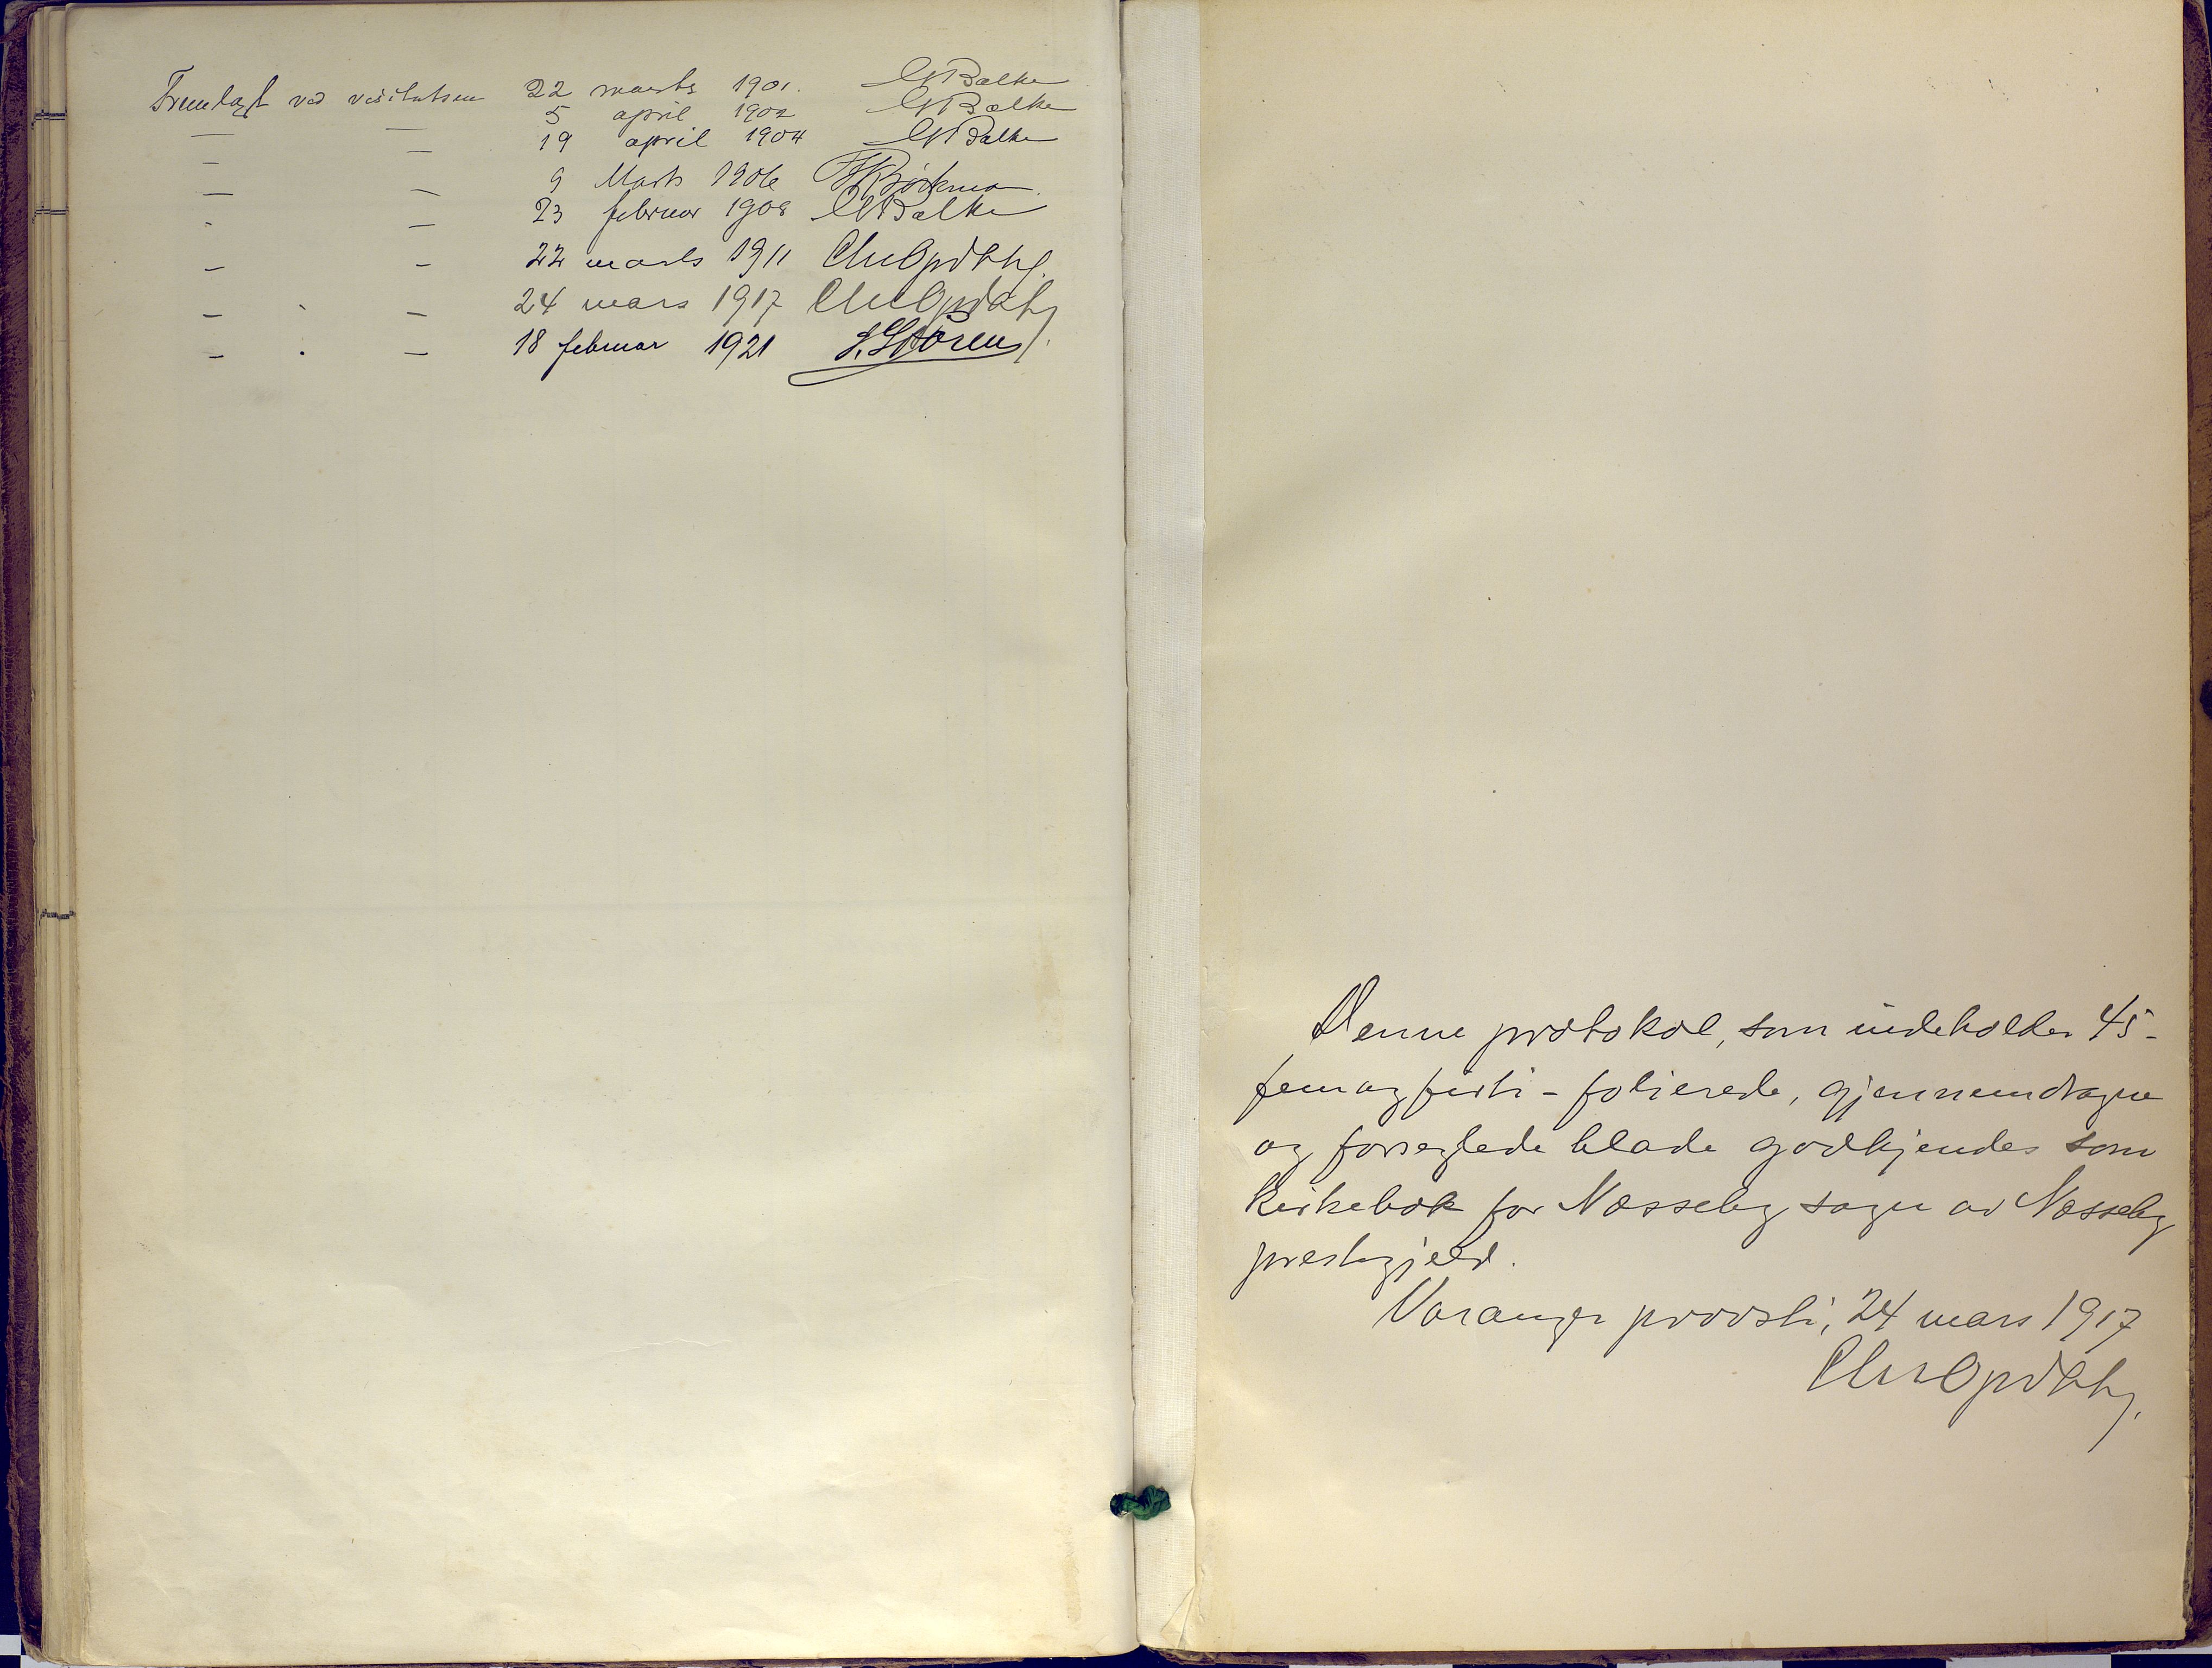 Fremlagt ved visitatsen 22 marts 1901. Balke
— — 5 april 1902 Balke
— — 19 april 1904 Balke
— — 9 Marts 1906
- — 23 februar 1908 Balke
— — 22 marts 1911 Chr Opdahl.
— - — 24 mars 1917 Chr Opdahl
— . — 18 februar 1921 S. Støren
Denne protokol, som indeholder 45 -
fem og firti - folierede, gjennemdragne
og forseglede blade godkjendes som
kirkebok for Næsseby sogn av Næsseby
prestegjeld.
Varanger provsti, 24 mars 1917
Chr Opdahl.